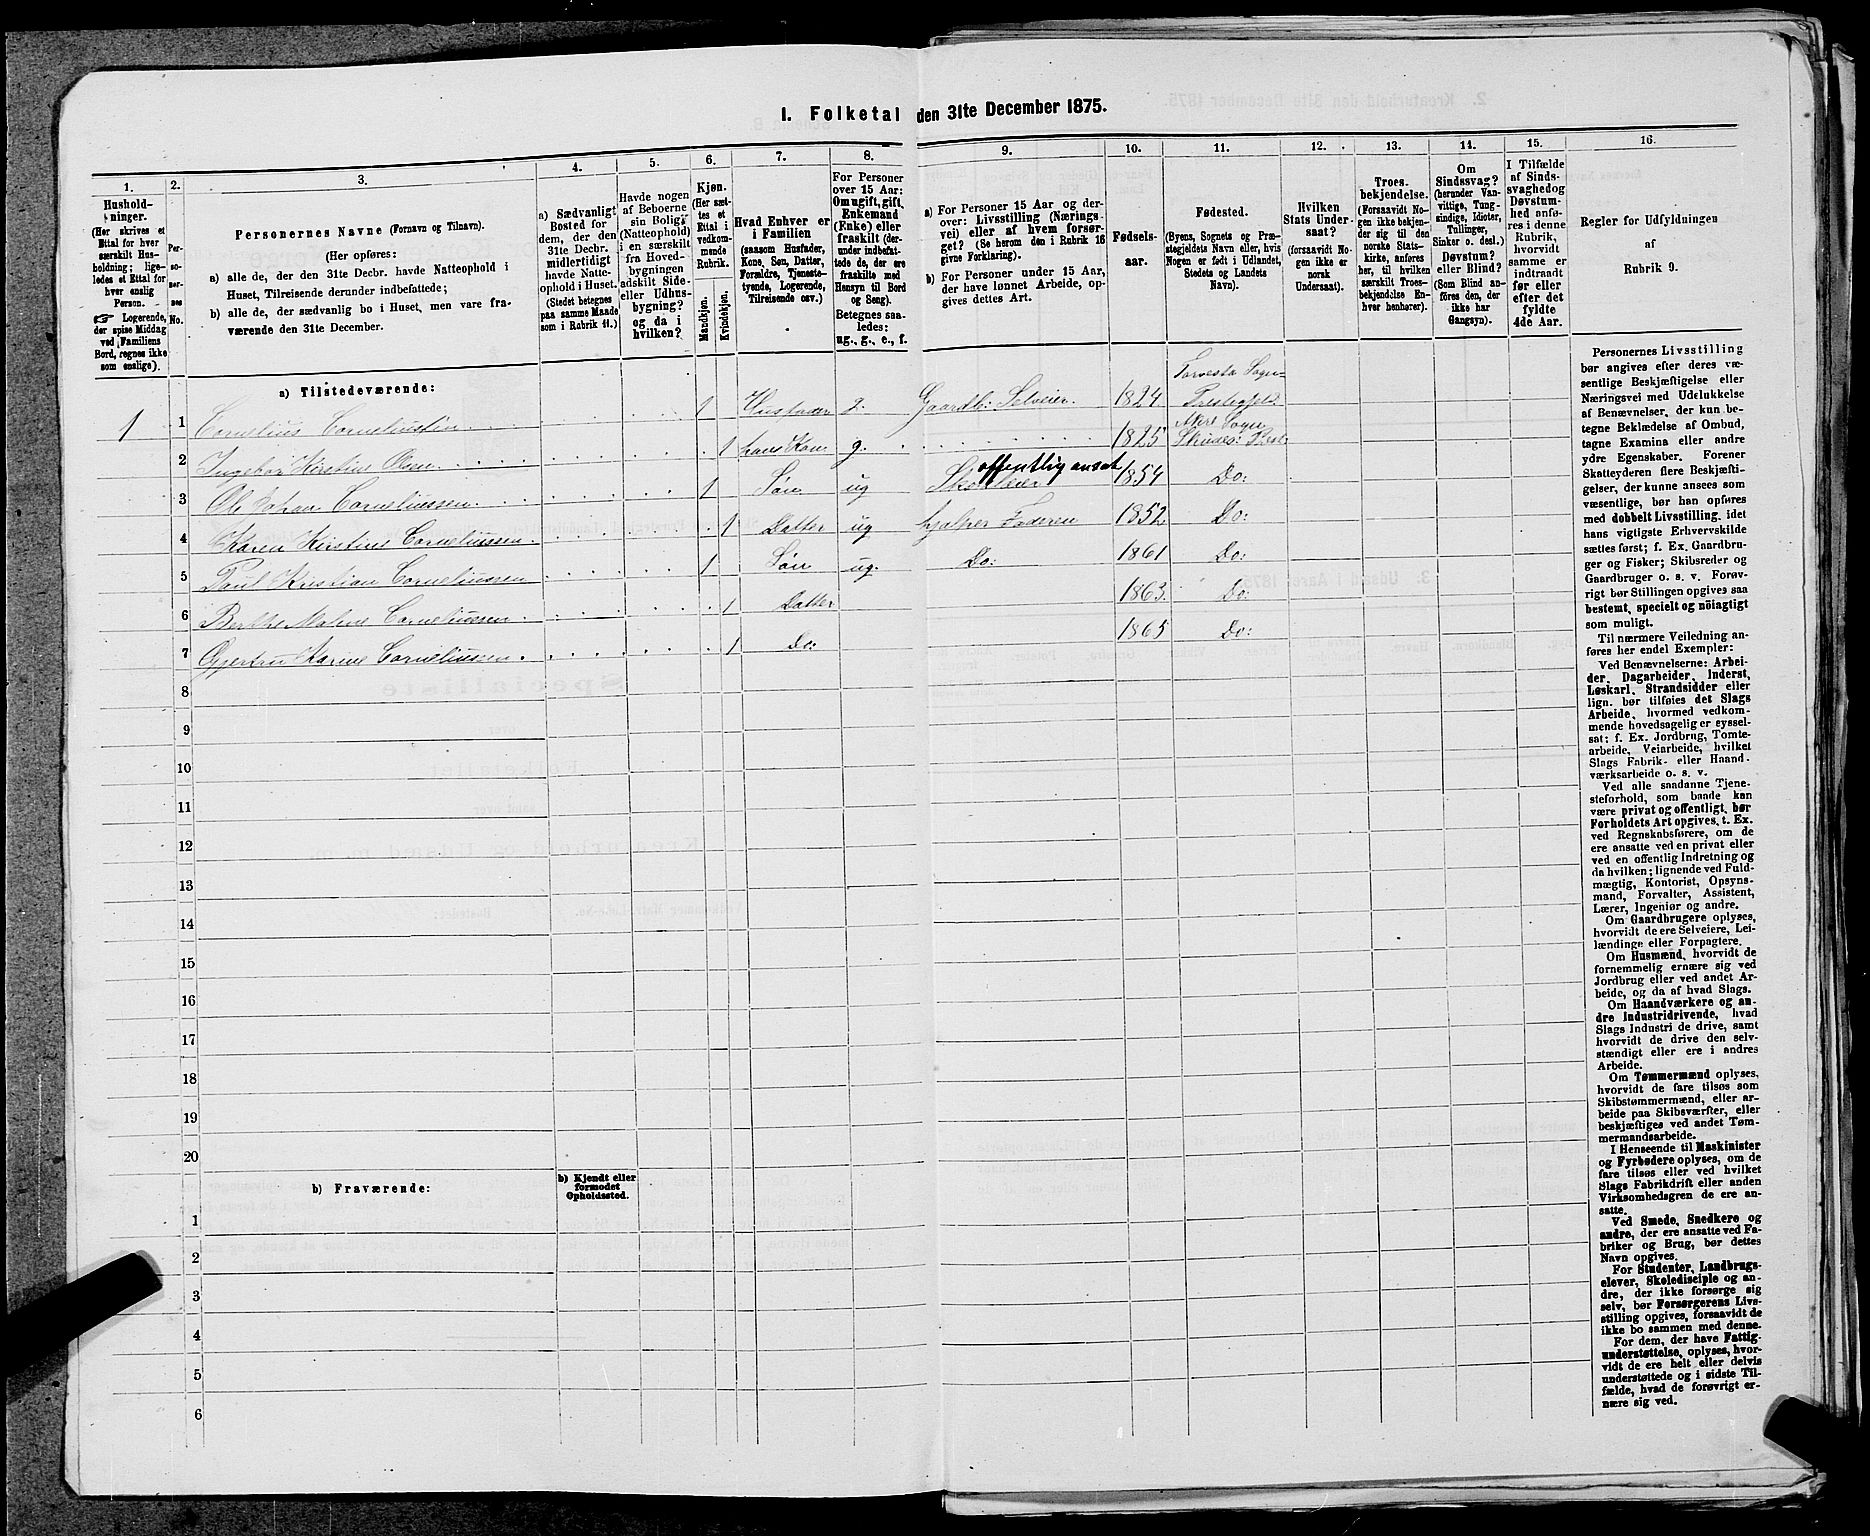 1. Folketal den 31te December 1875.
1.
2.
3.
4.
5.
6.
7.
8.
9.
10.
11.
12.
13.
14.
15.
16.
Hushold-
ninger.
(Her skrives et
Ettal for hver
særskilt Hus-
holdning; lige-
ledes et Ettal for
hver enslig
Person.
☞ Logerende,
der spise Middag
ved Familiens
Bord, regnes ikke
som enslige).
Per-
so-
ner-
nes
No.
Personernes Navne (Fornavn og Tilnavn).
(Her opføres:
a) alle de, der den 31te Decbr. havde Natteophold i
Huset, Tilreisende derunder indbefattede;
b) alle de, der sædvanlig bo i Huset, men vare fra-
værende den 31te December.
a) Sædvanligt
Bosted for
dem, der den
31te Decbr.
midlertidigt
havde Natte-
ophold i Huset.
(Stedet betegnes
paa samme Maade
som i Rubrik 11.)
Havde nogen
af Beboerne
sin Bolig
(Natteophold)
i en særskilt
fra Hoved-
bygningen
adskilt Side-
eller Udhus-
bygning?
og da i
hvilken?
Kjøn.
(Her sæt-
tes et
Ettal i
vedkom-
mende
Rubrik.
Mandkjøn.
Kvindekjøn.
Hvad Enhver er
i Familien
(saasom Husfader,
Kone, Søn, Datter,
Forældre, Tjeneste-
tyende, Logerende,
Tilreisende osv.)
For Personer
over 15 Aar:
Om ugift, gift,
Enkemand
(Enke) eller
fraskilt (der-
under indbefat-
tede de, der ere
fraskilte med
Hensyn til Bord
og Seng).
Betegnes saa-
ledes:
ug., g., e., f.
a) For Personer 15 Aar og der-
over: Livsstilling (Nærings-
vei) eller af hvem forsør-
get? (Se herom den i Rubrik 16
givne Forklaring).
b) For Personer under 15 Aar,
der have lønnet Arbeide, op-
gives dettes Art.
Fødsels-
aar.
Fødested.
(Byens, Sognets og Præ-
stegjeldets Navn eller, hvis
Nogen er født i Udlandet,
Stedets og Landets
Navn).
Hvilken
Stats Under-
saat?
(forsaavidt No-
gen ikke er
norsk
Undersaat).
Troes-
bekjendelse.
(Forsaavidt No-
gen ikke bekjen-
der sig til den
norske Stats-
kirke, anføres
her, til hvilken
særskilt Troes-
bekjendelse En-
hver henhører).
Om
Sindssvag?
(herunder Van-
vittige, Tung-
sindige, Idioter,
Tullinger,
Sinker o. desl.)
Døvstum?
eller Blind?
(Som Blind an-
føres den, der
ikke har
Gangsyn).
I Tilfælde
af Sinds-
svaghed og
Døvstum-
hed anfø-
res i denne
Rubrik,
hvorvidt
samme er
indtraadt
før eller
efter det
fyldte
4de Aar.
Regler for Udfyldningen
af
Rubrik 9.
a) Tilstedeværende:
1 1 Cornelius Corneliussen 1 Husfader g. Gaardb: Selveier 1824 Torvesta Sogn Prestegjeld
2 Ingebor Kirstine Olsen 1 hans Kone g. 1825 Sogn Skudes: Prest:
3 Ole Johan Corneliussen 1 Søn ug offentlig ansat 1854 Do:
4 Karen Kirstine Corneliussen 1 Datter ug hjælper Faderen 1852 Do:
5 Poul Kristian Corneliussen 1 Søn ug. Do: 1861 Do:
6 Berthe Malene Corneliussen 1 Datter 1863 Do:
7 Gjertru Karine Corneliussen 1 Do: 1865 Do:
8
9
10
11
12
13
14
15
16
17
18
19
20
b) Fraværende:
b) Kjendt eller
formodet
Opholdssted.
1
2
3
4
5
6
Personernes Livsstilling
bør angives efter deres væ-
sentlige Beskjæftigelse eller
Næringsvei med Udelukkelse
af Benævnelser, der kun be-
tegne Beklædelse af Ombud,
tagne Examina eller andre
ydre Egenskaber. Forener
Skatteyderen flere Beskjæfti-
gelser, der kunne ansees som
væsentlige, bør han opføres
med dobbelt Livsstilling, idet
hans vigtigste Erhvervskilde
sættes først; f. Ex. Gaardbru-
ger og Fisker; Skibsreder og
Gaardbruger o. s. v. Forøv-
rigt bør Stillingen opgives saa
bestemt, specielt og nöiagtigt
som muligt.
Til nærmere Veiledning an-
føres her endel Exempler:
Ved Benævnelserne: Arbei-
der, Dagarbeider, Inderst,
Løskarl, Strandsidder eller
lign. bør tilføies det Slags
Arbeide, hvormed vedkom-
mende hovedsagelig er syssel-
sat; f. Ex. Jordbrug, Tomte-
arbeide, Veiarbeide, hvilket
Slags Fabrik- eller Haand-
værksarbeide o. s. v.
Ved alle saadanne Tjene-
steforhold, som baade kan
være privat og offentligt, bør
Forholdets Art opgives, t. Ex.
ved Regnskabsførere, om de
ere ansatte ved en privat eller
ved en offentlig Indretning og
da hvilken; lignende ved Fuld-
mægtig, Kontorist, Opsyns-
mand, Forvalter, Assistent,
Lærer, Ingeniør og andre.
Om Gaardbrugere oplyses,
hvorvidt de ere Selveiere, Lei-
lændinge eller Forpagtere.
Om Husmænd, hvorvidt de
fornemmelig ernære sig ved
Jordbrug eller ved andet Ar-
beide, og da af hvad Slags.
Om Haandværkere og an-
dre Industridrivende, hvad
Slags Industri de drive, samt
hvorvidt de drive den selv-
stændigt eller ere i andres
Arbeide.
Om Tømmermænd oplyses,
hvorvidt de fare tilsøs som
Skibstømmermænd, eller ar-
beide paa Skibsværfter, eller
beskjæftiges ved andet Tøm-
mermandsarbeide.
I Henseende til Maskinister
og Fyrbødere oplyses, om de
fare tilsøs eller ved hvilket
Slags Fabrikdrift eller anden
Virksomhedsgren de ere an-
satte.
Ved Smede, Snedkere og
andre, der ere ansatte ved Fa-
briker og Brug, bør dettes
Navn opgives.
For Studenter, Landbrugs-
elever, Skoledisciple og an-
dre, der ikke forsørge sig
selv, bør Forsørgerens Livs-
stilling opgives, forsaavidt de
ikke bo sammen med denne.
For dem, der have Fattig-
understøttelse, oplyses, hvor-
vidt de ere helt eller delvis
understøttede og i sidste Til-
fælde, hvad de forøvrigt er-
nære sig ved.